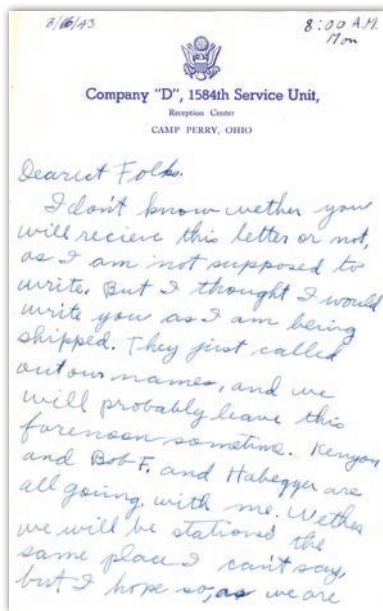 8:00 A.M.
Mon
Company "D", 1584th Service Unit,
Reception Center
CAMP PERRY, OHIO
Dearest Folks.
I don't know wether you
will recieve this letter or not,
as I am not supposed to
write. But I thought I would
write you as I am being
shipped. They just called
out our names, and we
will probably leave this
forenoon sometime. Kenyon
and Bob F. and Habegger are
all going with me. Wether
we will be stationed the
same place I can't say,
but I hope so, as we are